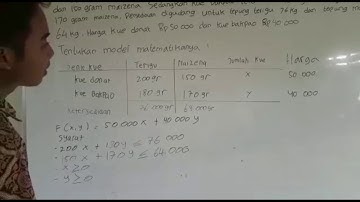 dan 150 gram maizena. Sedangkan kue
170 gram maizena. Persediaan digudang untuk tepung terigu 76 kg dan tepung
64 kg. Harga kue donat Rp 50 000 dan kue bakpao Rp 40 000
Tentukan model matematikanya!
Jenis kue Terigu Maizena Jumlah kue Harga
kue donat 200 gr 150 gr X 50 000
kue bakpao 180 gr 170 gr Y 40 000
76 000 gr 64 000 gr
F(x,y) = 50 000 x + 40 000 y
Syarat
- 200 x + 180 y ≤ 76 000
- 150 x + 170 y ≤ 64 000
- x ≥ 0
- y ≥ 0